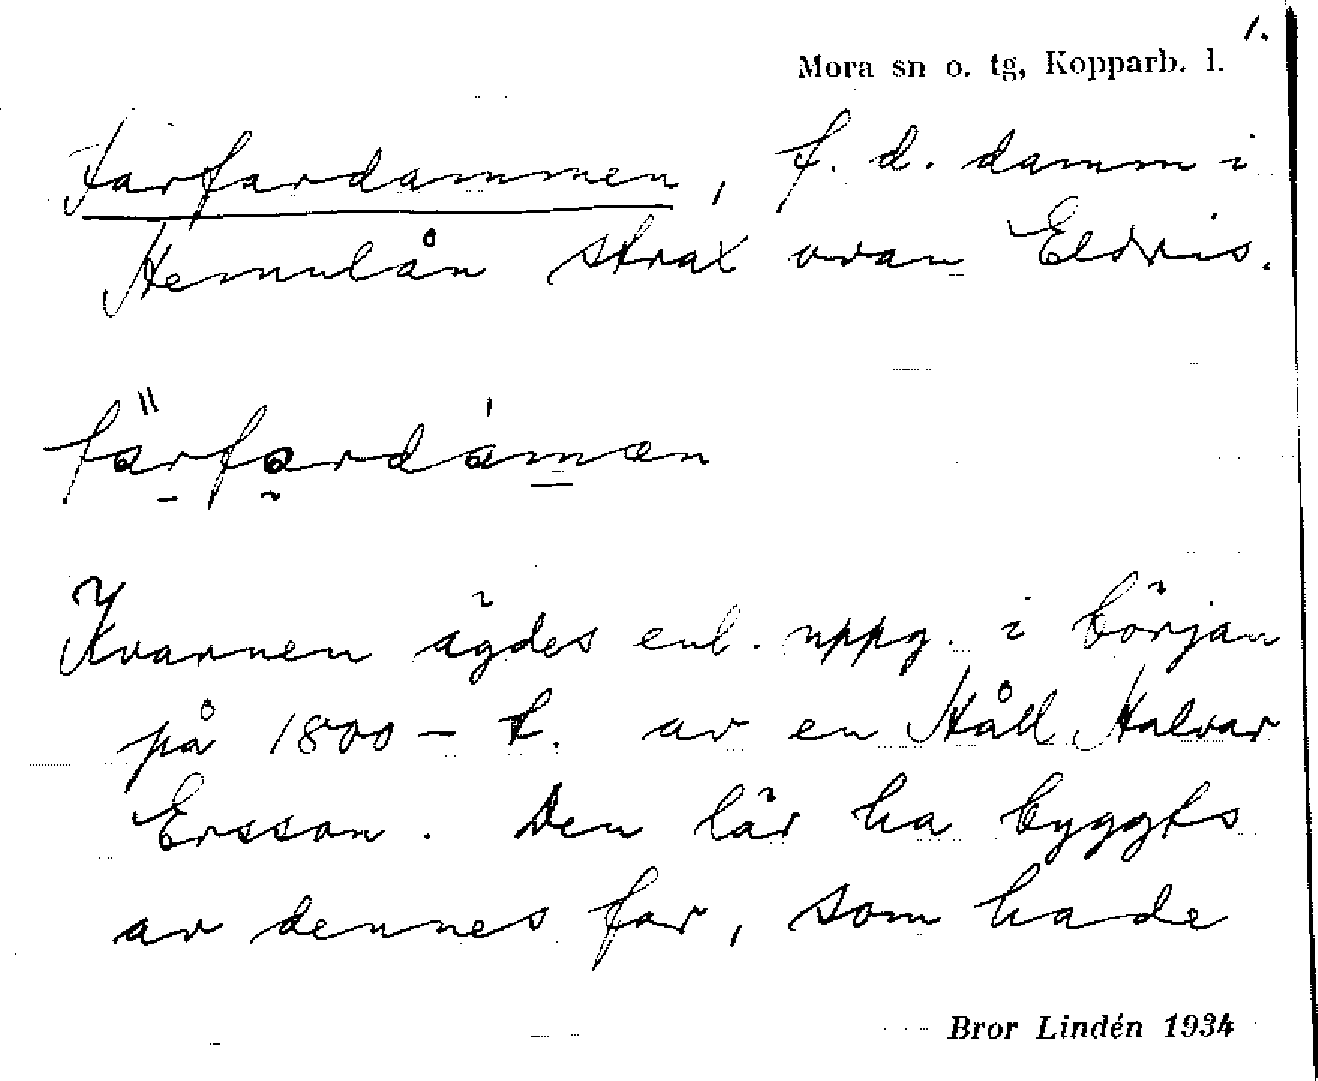 1.
Mora sn o. tg, Kopparb. l.
Farfardammen, f. d. damm i
Hemulån strax ovan Eldris.
Kvarnen ägdes enl. uppg. i början
på 1800-t. av en Håll Halvar
Ersson. Den lär ha byggts
av dennes far, som hade
Bror Lindén 1934